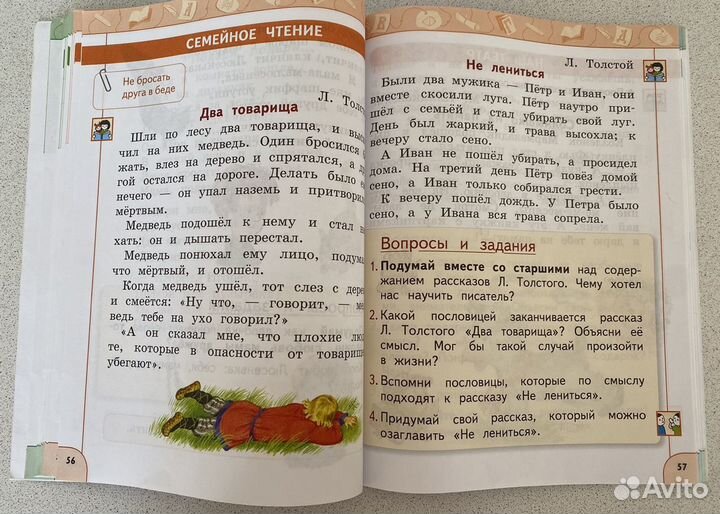 СЕМЕЙНОЕ ЧТЕНИЕ
Не бросать
друга в беде
Л. Толс
Два товарища
Шли по лесу два товарища, и выс
чил на них медведь. Один бросился
жать, влез на дерево и спрятался, а д
гой остался на дороге. Делать было е
нечего — он упал наземь и притвори
мёртвым.
Медведь подошёл к нему и стал н
хать: он и дышать перестал.
Медведь понюхал ему лицо, подум
что мёртвый, и отошёл.
Когда медведь ушёл, тот слез с дере
и смеётся: «Ну что, — говорит, — ме
ведь тебе на ухо говорил?»
«А он сказал мне, что плохие лю
те, которые в опасности от товарищ
убегают».
56
Л. Толстой
Не лениться
Были два мужика — Пётр и Иван, они
вместе скосили луга. Пётр наутро при-
шёл с семьёй и стал убирать свой луг.
День был жаркий, и трава высохла; к
вечеру стало сено.
А Иван не пошёл убирать, а просидел
дома. На третий день Пётр повёз домой
сено, а Иван только собирался грести.
К вечеру пошёл дождь. У Петра было
сено, а у Ивана вся трава сопрела.
Вопросы и задания
1. Подумай вместе со старшими над содер-
жанием рассказов Л. Толстого. Чему хотел
нас научить писатель?
2. Какой пословицей заканчивается рассказ
Л. Толстого «Два товарища»? Объясни её
смысл. Мог бы такой случай произойти
в жизни?
3. Вспомни пословицы, которые по смыслу
подходят к рассказу «Не лениться».
4. Придумай свой рассказ, который можно
озаглавить «Не лениться».
57
Avito